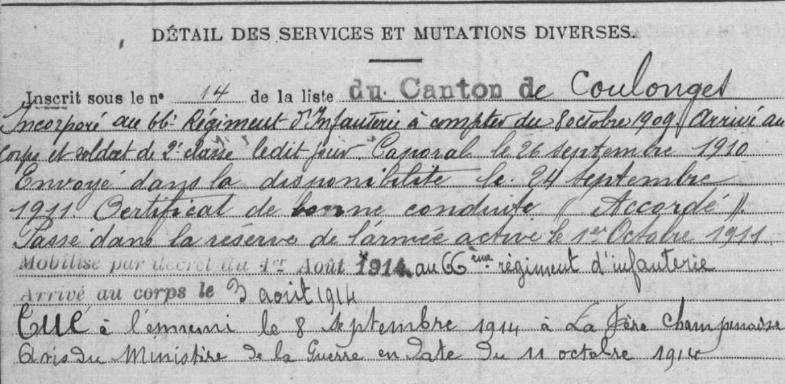 DÉTAIL DES SERVICES ET MUTATIONS DIVERSES.
Inscrit sous le n° 14 de la liste du Canton de Coulonges
Incorporé au 66e Régiment d'Infanterie à compter du 8 octobre 1909, Arrivé au
corps et soldat de 2e classe ledit jour. Caporal le 26 septembre 1910
Envoyé dans la disponibilité le 24 septembre
1911. Certificat de bonne conduite "Accordé".
Passé dans la réserve de l'armée active le 1er Octobre 1911.
Mobilisé par décret du 1er Août 1914 au 66ème régiment d'infanterie
Arrivé au corps le 3 août 1914
Tué à l'ennemi le 8 septembre 1914 à La fère champenoise
Avis du Ministère de la Guerre en date du 11 octobre 1914